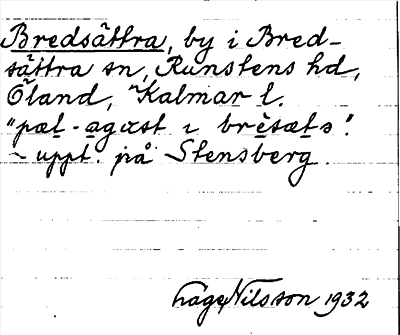 Bredsättra, by i Bred-
sättra sn, Runstens hd,
Öland, Kalmar l.
"pæl-agust i brèsæts".
~ uppt. på Stensberg.
Nilsson 1932